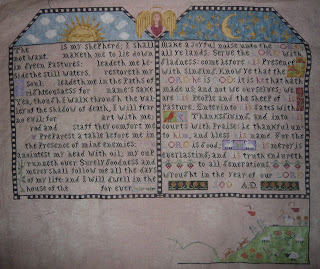 The is my shepherd; I shall
not want. maketh me to lie down
in Green Pastures: leadeth me be-
side the still waters. restoreth my
soul: leadeth me in the Paths of
righteousness for name's sake
Yea, though I walk through the val-
ley of the shadow of death, I will fear
no evil: for art with me;
rod and staff they comfort me
Preparest a table before me in
the presence of mine enemies:
anointest my head with oil; my cup
runneth over Surely Goodness and
mercy shall follow me all the days
of my life: and I will dwell in the
house of the for ever.
make a joyful noise unto the ORD
all lands. Serve the ORD with
Gladness: come before Presence
with singing. Know ye that the
ORD he is OD: it is he that hath
made us, and not we ourselves; we
are Is People and the sheep of Is
Pasture. Enter into Is Gates with
Thanksgiving, and into
courts with Praise: be thankful un-
to him, and bless is name. For the
ORD is Good; is mercy is
everlasting; and is truth endureth
to all Generations.
wrought in the year of our ORD
200 A.D.